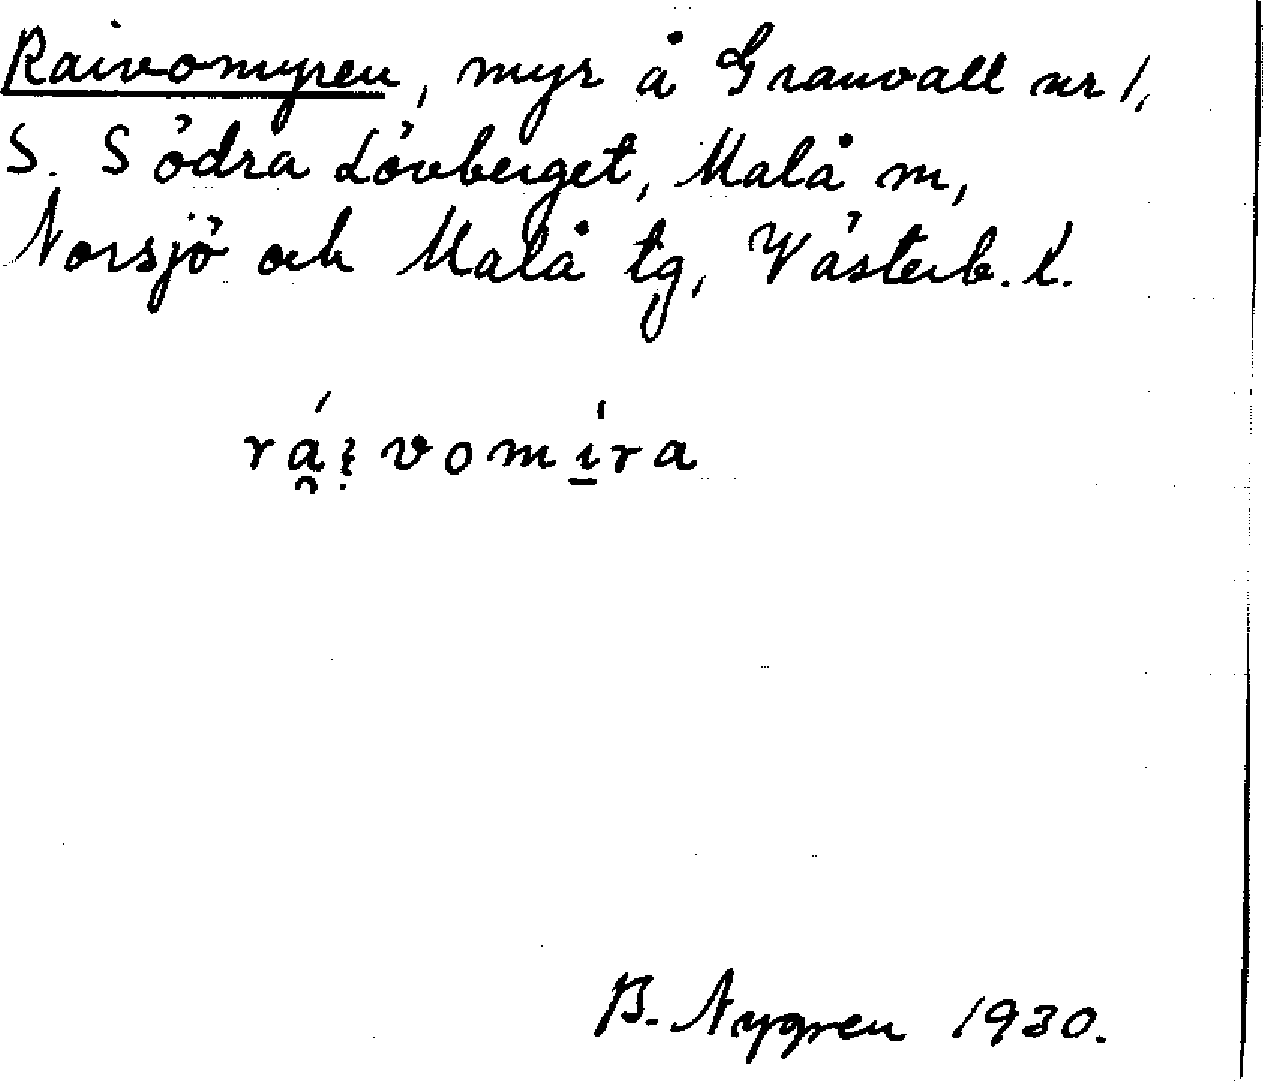 Raivomyren, myr å Granvall nr 1,
S. Södra Lövberget, Malå m,
Norsjö och Malå tg, Västerb. l.
rá̯ı̣vomı̲́ra
B. Nygren 1930.